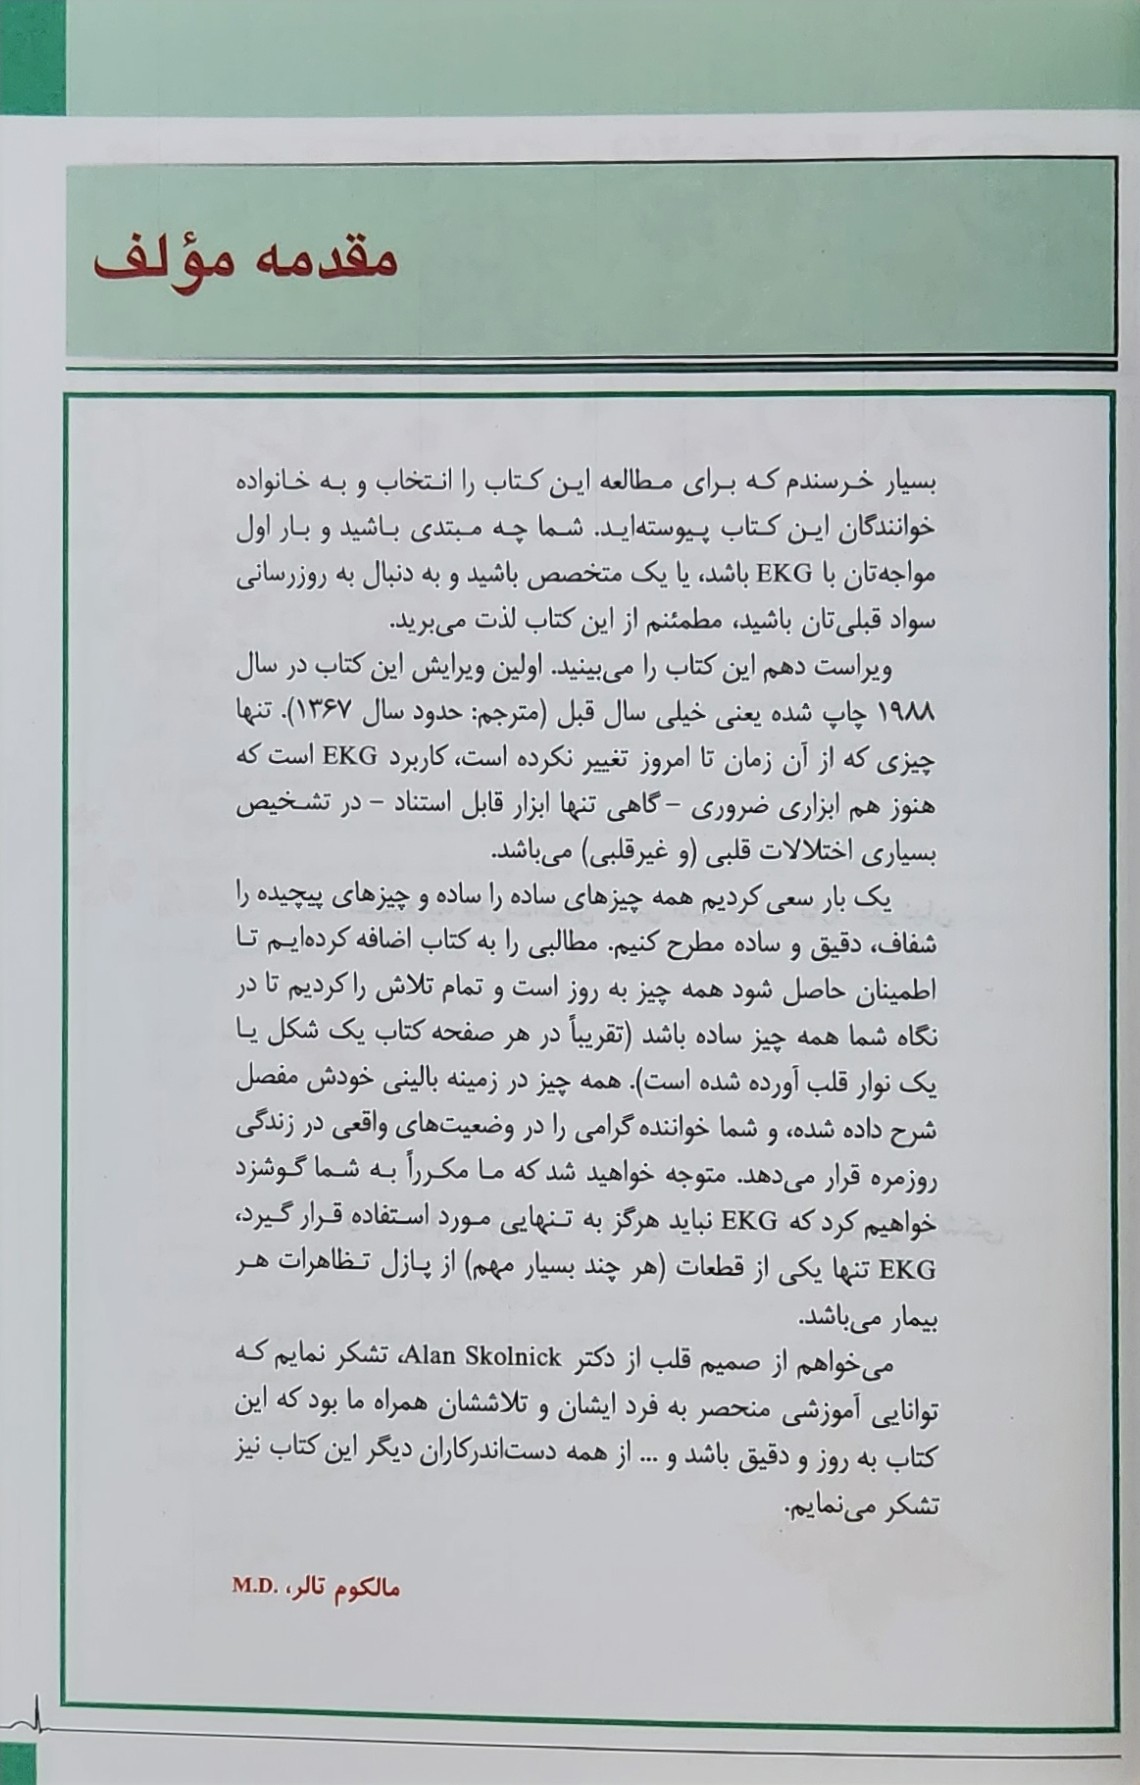 مقدمه مؤلف
بسیار خرسندم که برای مطالعه این کتاب را انتخاب و به خانواده
خوانندگان این کتاب پیوسته‌اید. شما چه مبتدی باشید و بار اول
مواجه‌تان با EKG باشد، یا یک متخصص باشید و به دنبال به روزرسانی
سواد قبلی‌تان باشید، مطمئنم از این کتاب لذت می‌برید.
ویراست دهم این کتاب را می‌بینید. اولین ویرایش این کتاب در سال
۱۹۸۸ چاپ شده یعنی خیلی سال قبل (مترجم: حدود سال ۱۳۶۷). تنها
چیزی که از آن زمان تا امروز تغییر نکرده است، کاربرد EKG است که
هنوز هم ابزاری ضروری – گاهی تنها ابزار قابل استناد – در تشخیص
بسیاری اختلالات قلبی (و غیرقلبی) می‌باشد.
یک بار سعی کردیم همه چیزهای ساده را ساده و چیزهای پیچیده را
شفاف، دقیق و ساده مطرح کنیم. مطالبی را به کتاب اضافه کرده‌ایم تا
اطمینان حاصل شود همه چیز به روز است و تمام تلاش را کردیم تا در
نگاه شما همه چیز ساده باشد (تقریباً در هر صفحه کتاب یک شکل یا
یک نوار قلب آورده شده است). همه چیز در زمینه بالینی خودش مفصل
شرح داده شده، و شما خواننده گرامی را در وضعیت‌های واقعی در زندگی
روزمره قرار می‌دهد. متوجه خواهید شد که ما مکرراً به شما گوشزد
خواهیم کرد که EKG نباید هرگز به تنهایی مورد استفاده قرار گیرد،
EKG تنها یکی از قطعات (هر چند بسیار مهم) از پازل تظاهرات هر
بیمار می‌باشد.
می‌خواهم از صمیم قلب از دکتر Alan Skolnick، تشکر نمایم که
توانایی آموزشی منحصر به فرد ایشان و تلاششان همراه ما بود که این
کتاب به روز و دقیق باشد و ... از همه دست‌اندرکاران دیگر این کتاب نیز
تشکر می‌نمایم.
مالکوم تالر، M.D.